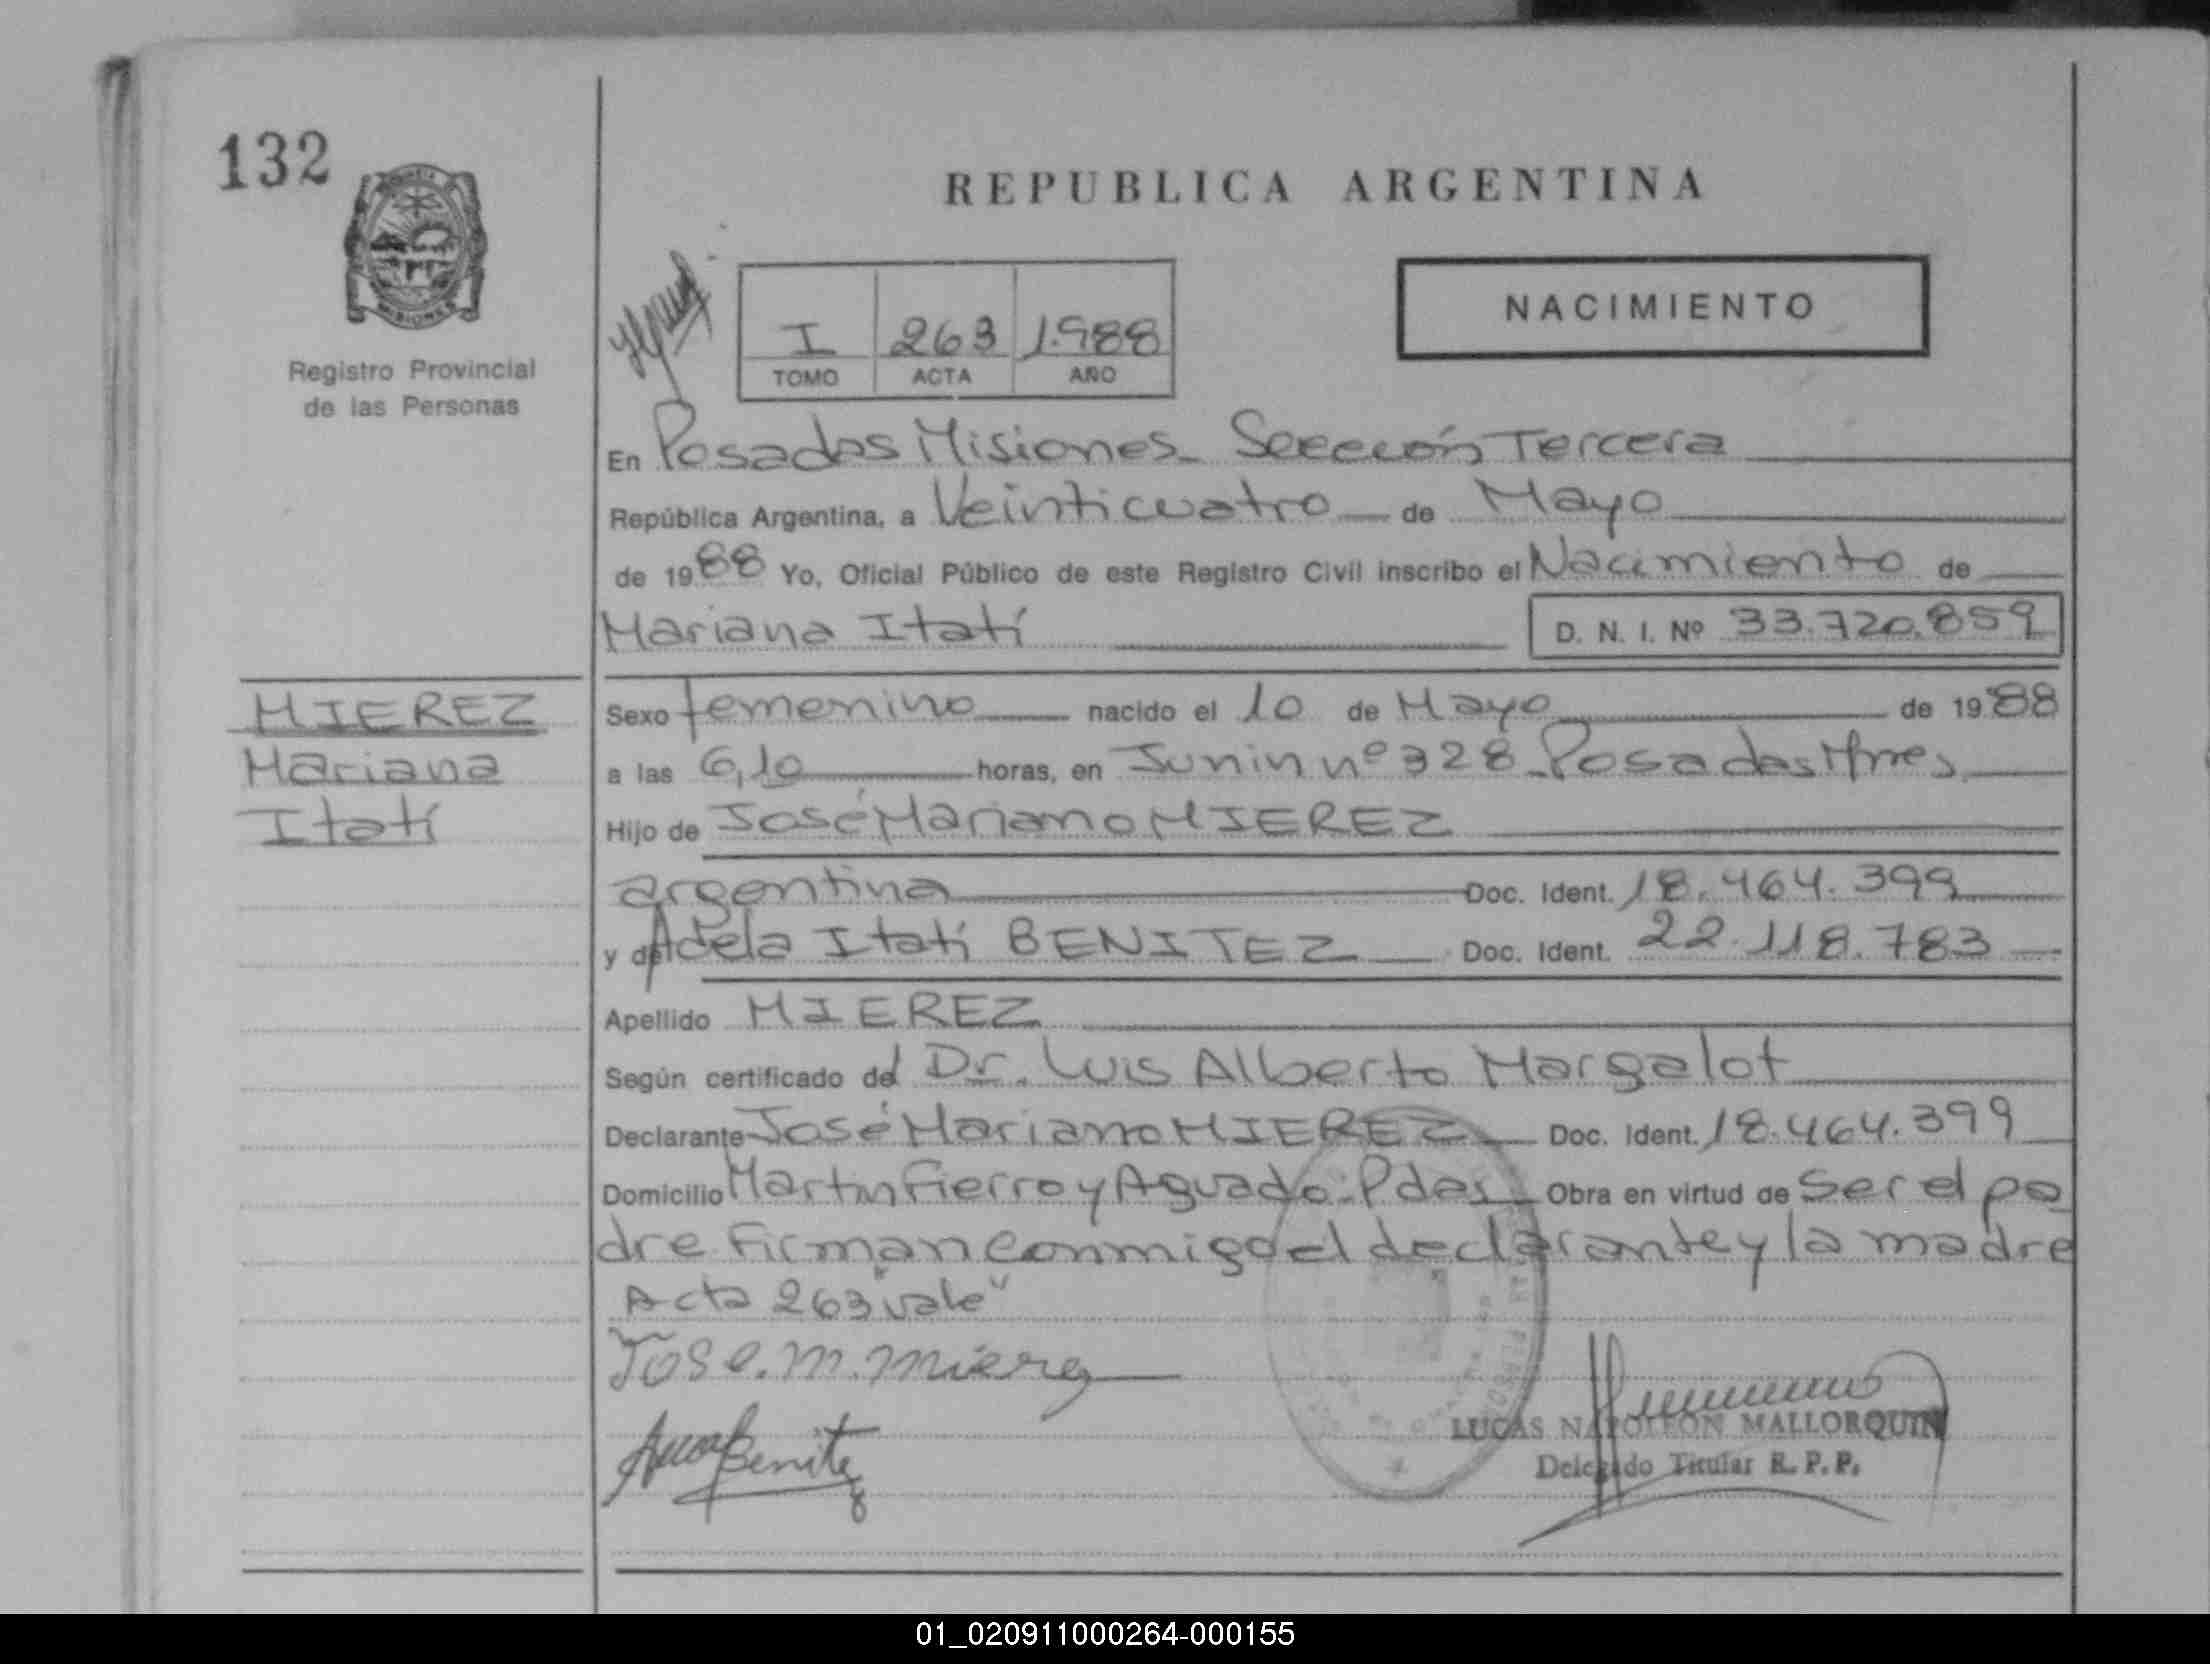 132
REPUBLICA ARGENTINA
MISIONES
Registro Provincial
de las Personas
I 263 1.988
TOMO ACTA AÑO
NACIMIENTO
En Posadas Misiones_ Sección Tercera
República Argentina, a Veinticuatro de Mayo
de 1988 Yo, Oficial Público de este Registro Civil inscribo el Nacimiento de
Mariana Itatí D. N. I. Nº 33.720.859
MIEREZ
Mariana
Itatí
Sexo femenino nacido el 10 de Mayo de 1988
a las 6,10 horas, en Junin nº 328_Posadas Mnes
Hijo de José Mariano MIEREZ
argentina Doc. Ident. 18.464.399
y de Adela Itatí BENITEZ Doc. Ident. 22.118.783
Apellido MIEREZ
Según certificado del Dr. Luis Alberto Margalot
Declarante José Mariano MIEREZ Doc. Ident. 18.464.399
Domicilio Martin Fierro y Aguado-Pdas Obra en virtud de Ser el pa
dre Firman conmigo el declarante y la madre
Acta 263 "vale"
Jose.m.mierez
Benitez
LUCAS NAPOLEON MALLORQUIN
Delegado Titular R. P. P.
01_020911000264-000155